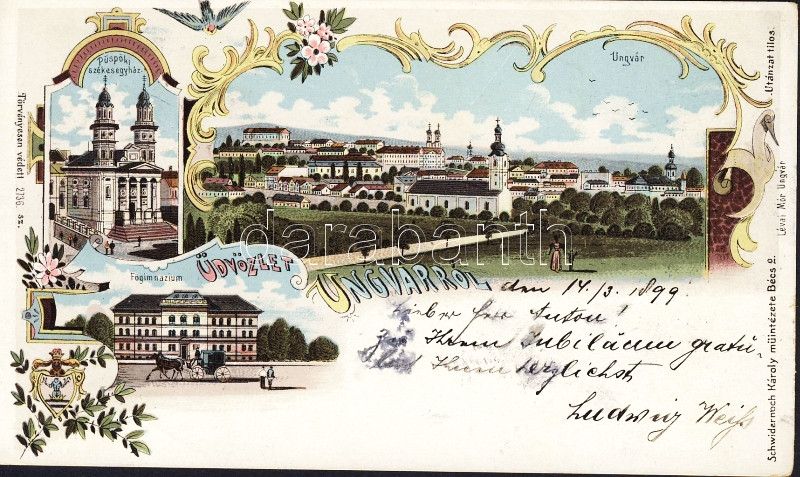 Püspöki
székesegyház.
Ungvár
Törvényesen védett 2736. sz.
-Utánzat tilos.
Lévai Mór Ungvár
darabanth
Főgimnázium
ÜDVÖZLET
UNGVÁRRÓL
den 14/3. 1899.
Lieber Herr Anton!
Zu Ihrem Jubiläum gratu-
Ihnen herzlichst
Ludwig Weiss
Schwidernoch Károly műintézete Bécs 2.